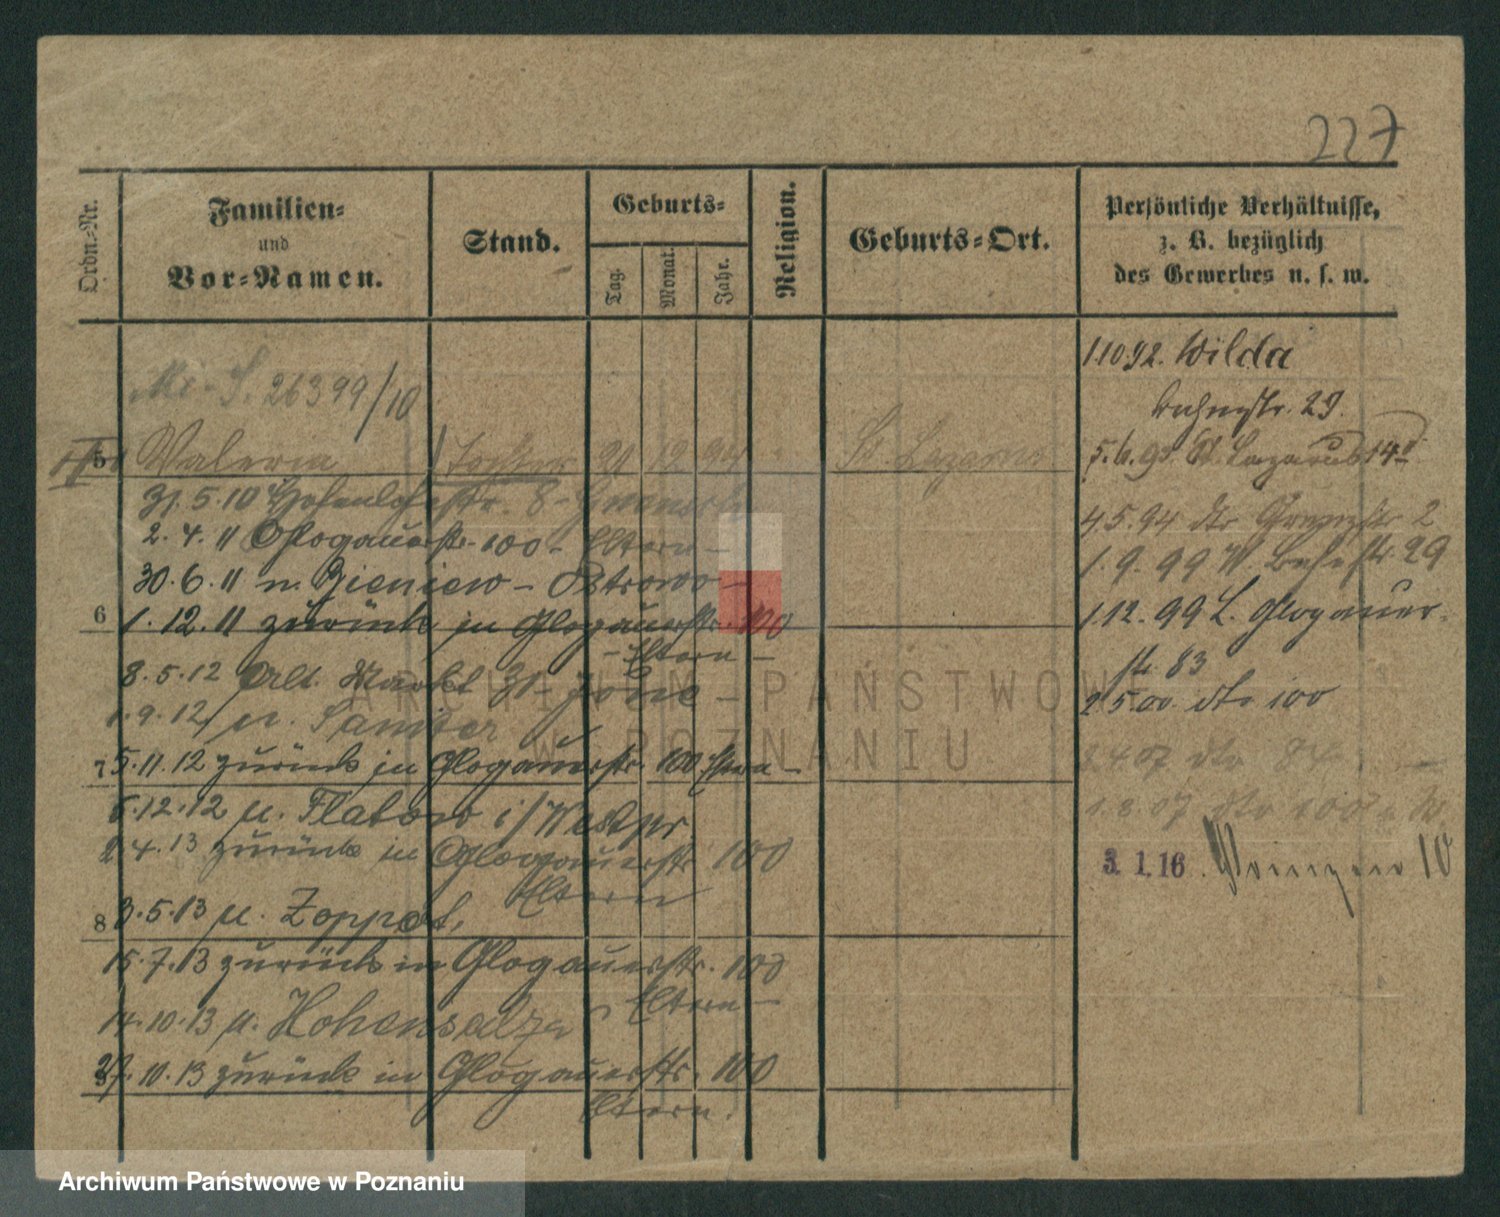 227
Ordn.-Nr.
Familien-
und
Vor-Namen.
Stand.
Geburts-
Tag.
Monat.
Jahr.
Religion.
Geburts-Ort.
Persönliche Verhältnisse,
z. B. bezüglich
des Gewerbes u. s. w.
26399/10
5 Valeria Tochter 12 94 St. Lazarus
31.5.10 Hohenlohestr. 8 -
2.4.11 Glogauerstr. 100 - Eltern -
30.6.11 n. - Ostrowo -
6
1.12.11 zurück in Glogauerstr. 100
- Eltern -
8.5.12 Alt. Markt 31
1.9.12 n. Samter
7
5.11.12 zurück in Glogauerstr. 100 Eltern -
6.12.12 n. Flatow i/Westpr.
2.4.13 zurück in Glogauerstr. 100
Eltern
8
3.5.13 n. Zoppot,
15.7.13 zurück in Glogauerstr. 100
Eltern -
14.10.13 n. Hohensalza
27.10.13 zurück in Glogauerstr. 100
Eltern.
1.10.92. Wilda
29.
St. Lazarus 14
4.5.94 dto 2
1.9.99 W. 29
1.12.99 L. Glogauer-
str. 83
2.5.00. dto 100
2.4.07 dto 84
1.8.07 dto 100
3. 1. 16 10
ARCHIWUM PAŃSTWOWE
W POZNANIU
Archiwum Państwowe w Poznaniu